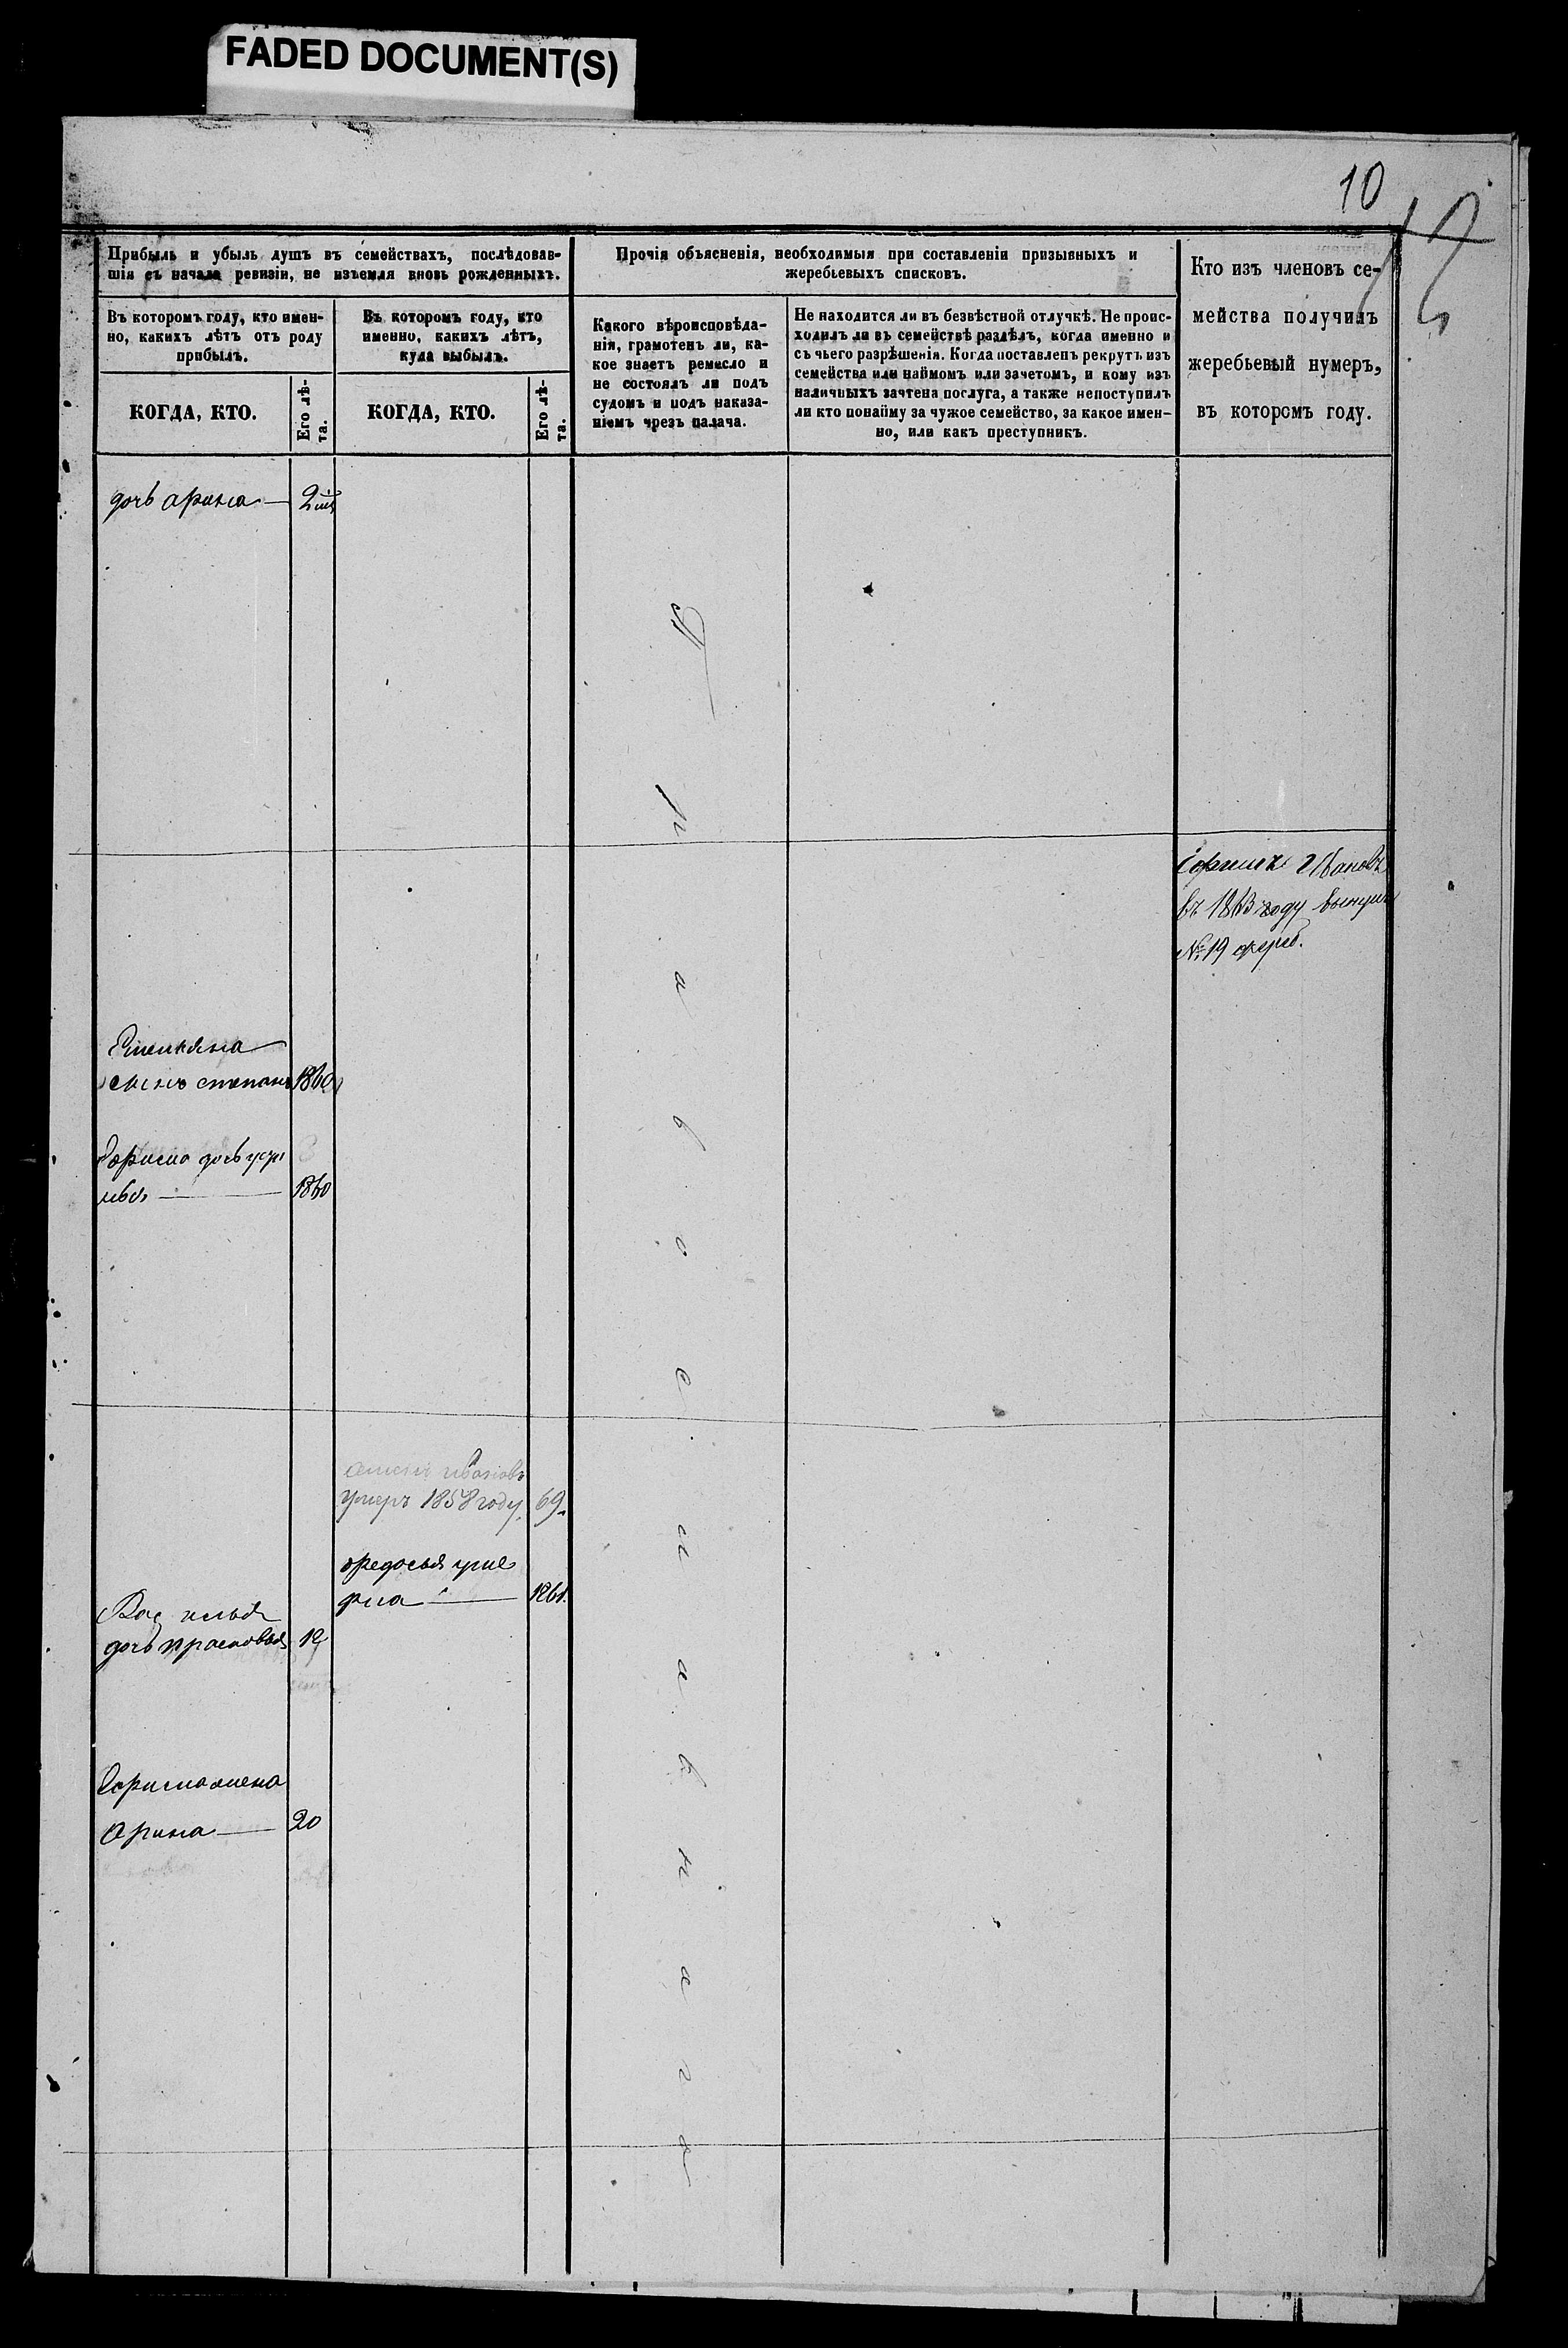 FADED DOCUMENT(S)
10
Прибыль и убыль душъ въ семействахъ, послѣдовав-
шія съ начала ревизіи, не изъемля вновь рожденныхъ.
Прочія объясненія, необходимыя при составленіи призывныхъ и
жеребьевыхъ списковъ.
Кто изъ членовъ се-
мейства получилъ
жеребьевый нумеръ,
въ которомъ году.
Въ которомъ году, кто имен-
но, какихъ лѣтъ отъ роду
прибылъ.
Въ которомъ году, кто
именно, какихъ лѣтъ,
куда выбылъ.
Какого вѣроисповѣда-
нія, грамотенъ ли, ка-
кое знаетъ ремесло и
не состоялъ ли подъ
судомъ и подъ наказа-
ніемъ чрезъ палача.
Не находится ли въ безвѣстной отлучкѣ. Не проис-
ходилъ ли въ семействѣ раздѣлъ, когда именно и
съ чьего разрѣшенія. Когда поставленъ рекрутъ изъ
семейства или наймомъ или зачетомъ, и кому изъ
наличныхъ зачтена послуга, а также непоступилъ
ли кто понайму за чужое семейство, за какое имен-
но, или какъ преступникъ.
КОГДА, КТО.
Его лѣ-
та.
КОГДА, КТО.
Его лѣ-
та.
дочь арина — 2
Православнаго
Ефимъ Ивановъ
въ году вынулъ
№ 19 жереб.
Емельяна
сынъ степанъ 1860
дочь усти
нья — 1860
ивановъ
умеръ 1858 году 69
федосья уме
рла — 1861.
дочь прасковья 19
жена
Арина — 20